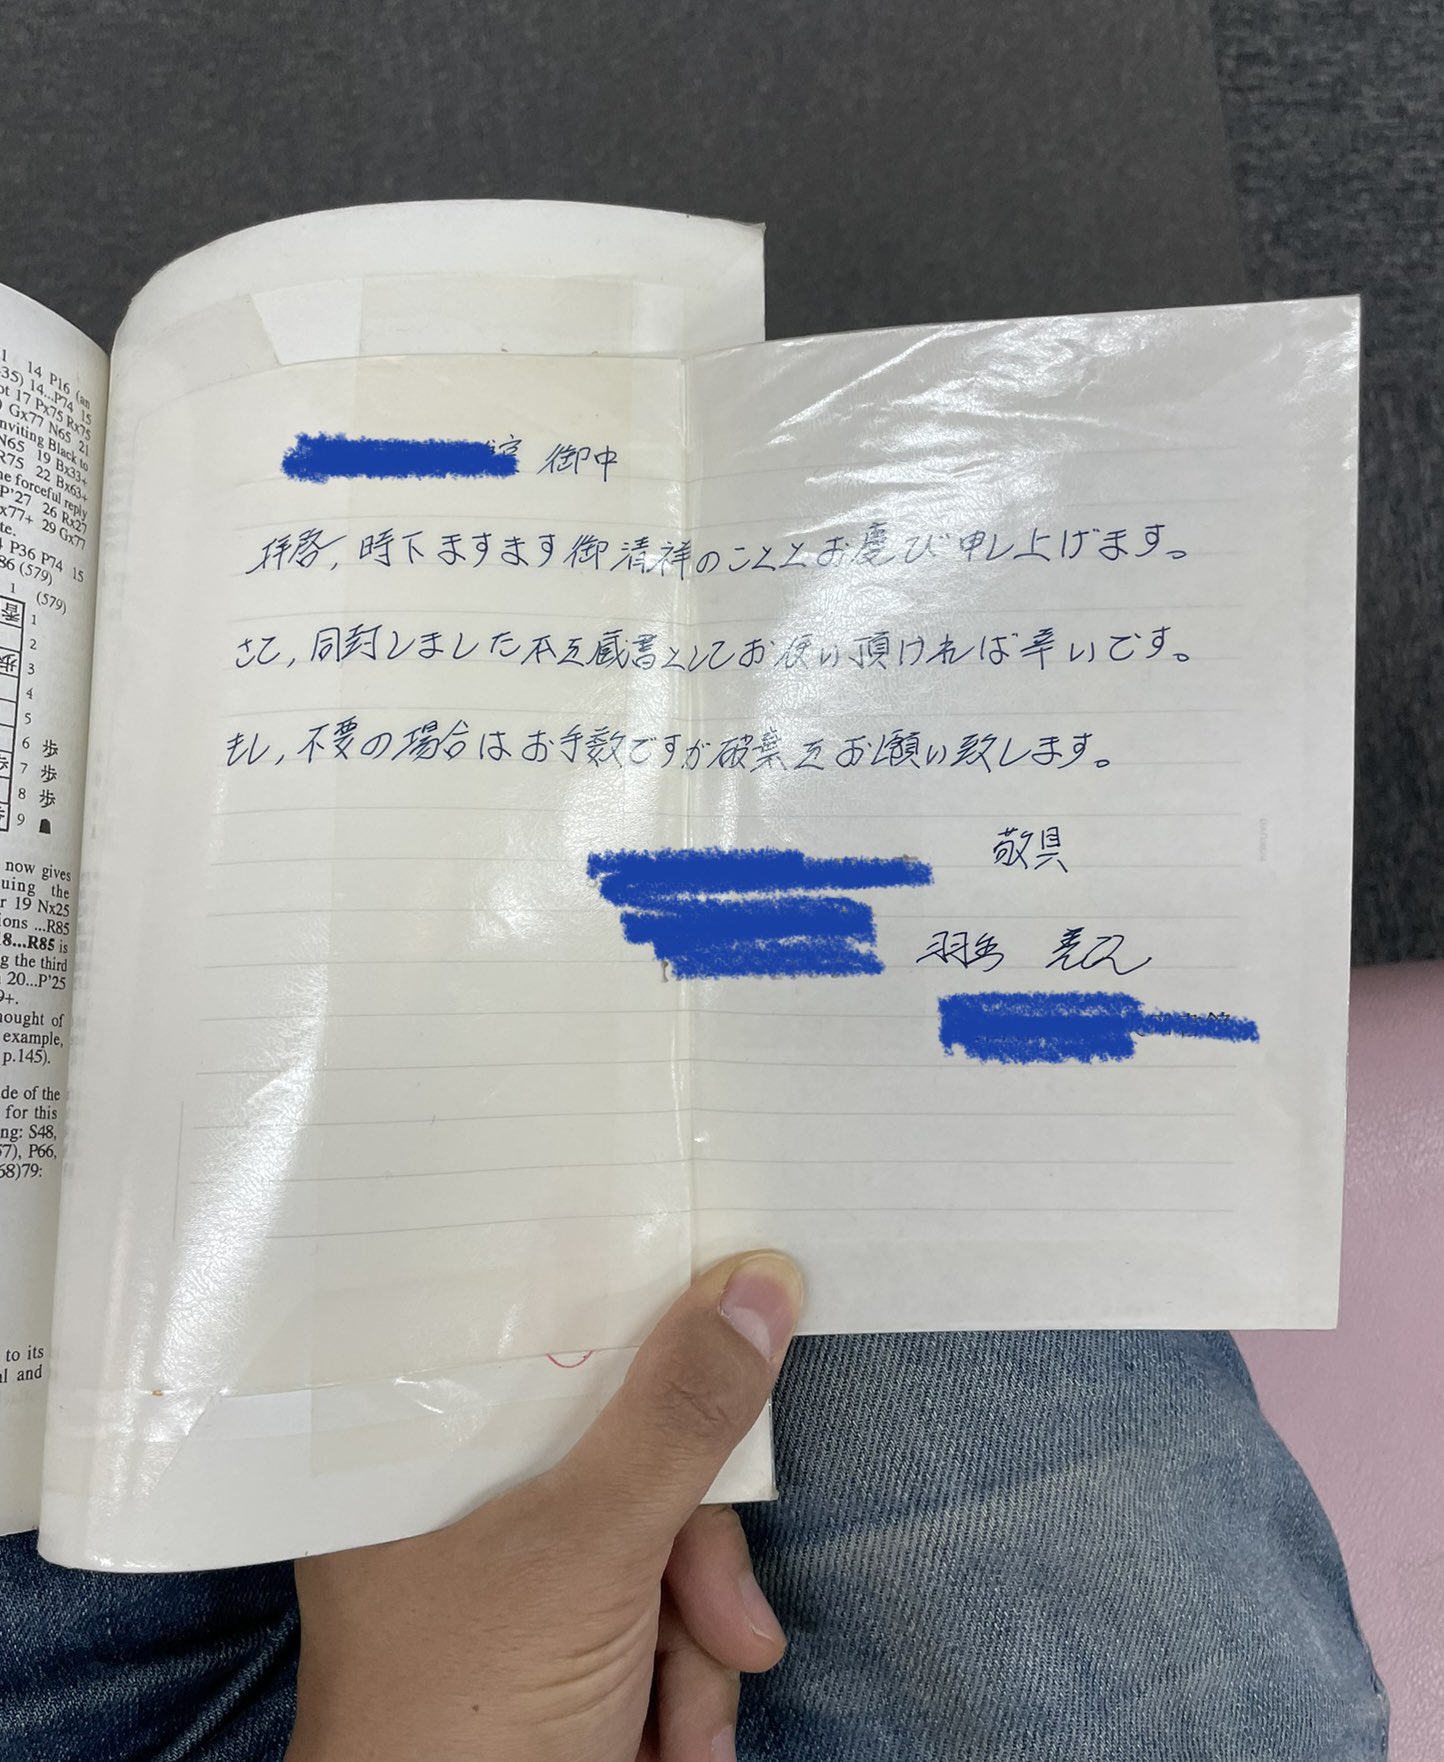 1 14 P16 (an
35) 14...P74 15
ot 17 Px75 Rx75
Gx77 N65 21
nviting Black to
N65 19 Bx33+
R75 22 Bx63+
he forceful reply
P'27 26 Rx27
x77+ 29 Gx77
te.
P36 P74 15
86 (579)
1 (579)
香 1
2
歩 3
4
5
6 歩
7 歩
8 歩
9
now gives
uing the
r 19 Nx25
ions ...R85
8...R85 is
g the third
20...P'25
9+.
hought of
example,
p.145).
de of the
for this
ng: S48,
57), P66,
68)79:
to its
al and
御中
拝啓,時下ますます御清祥のこととお慶び申し上げます。
さて,同封しました本を蔵書としてお使い頂ければ幸いです。
もし,不要の場合はお手数ですが破棄をお願い致します。
敬具
羽生 善治